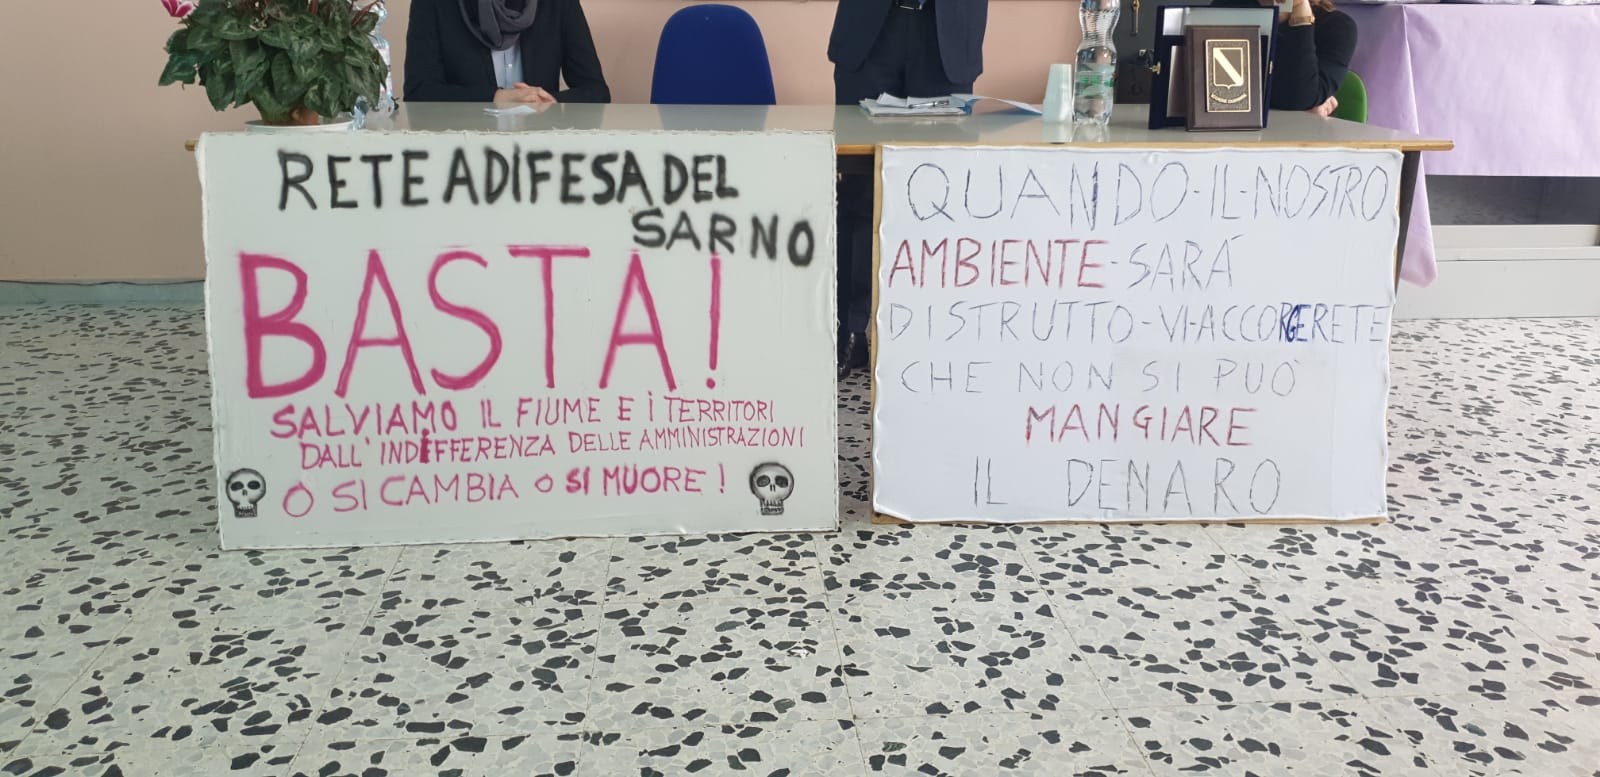 RETE A DIFESA DEL
SARNO
BASTA!
SALVIAMO IL FIUME E I TERRITORI
DALL'INDIFFERENZA DELLE AMMINISTRAZIONI
O SI CAMBIA O SI MUORE!
QUANDO-IL-NOSTRO
AMBIENTE-SARÁ
DISTRUTTO-VI-ACCORGERETE
CHE NON SI PUÒ
MANGIARE
IL DENARO